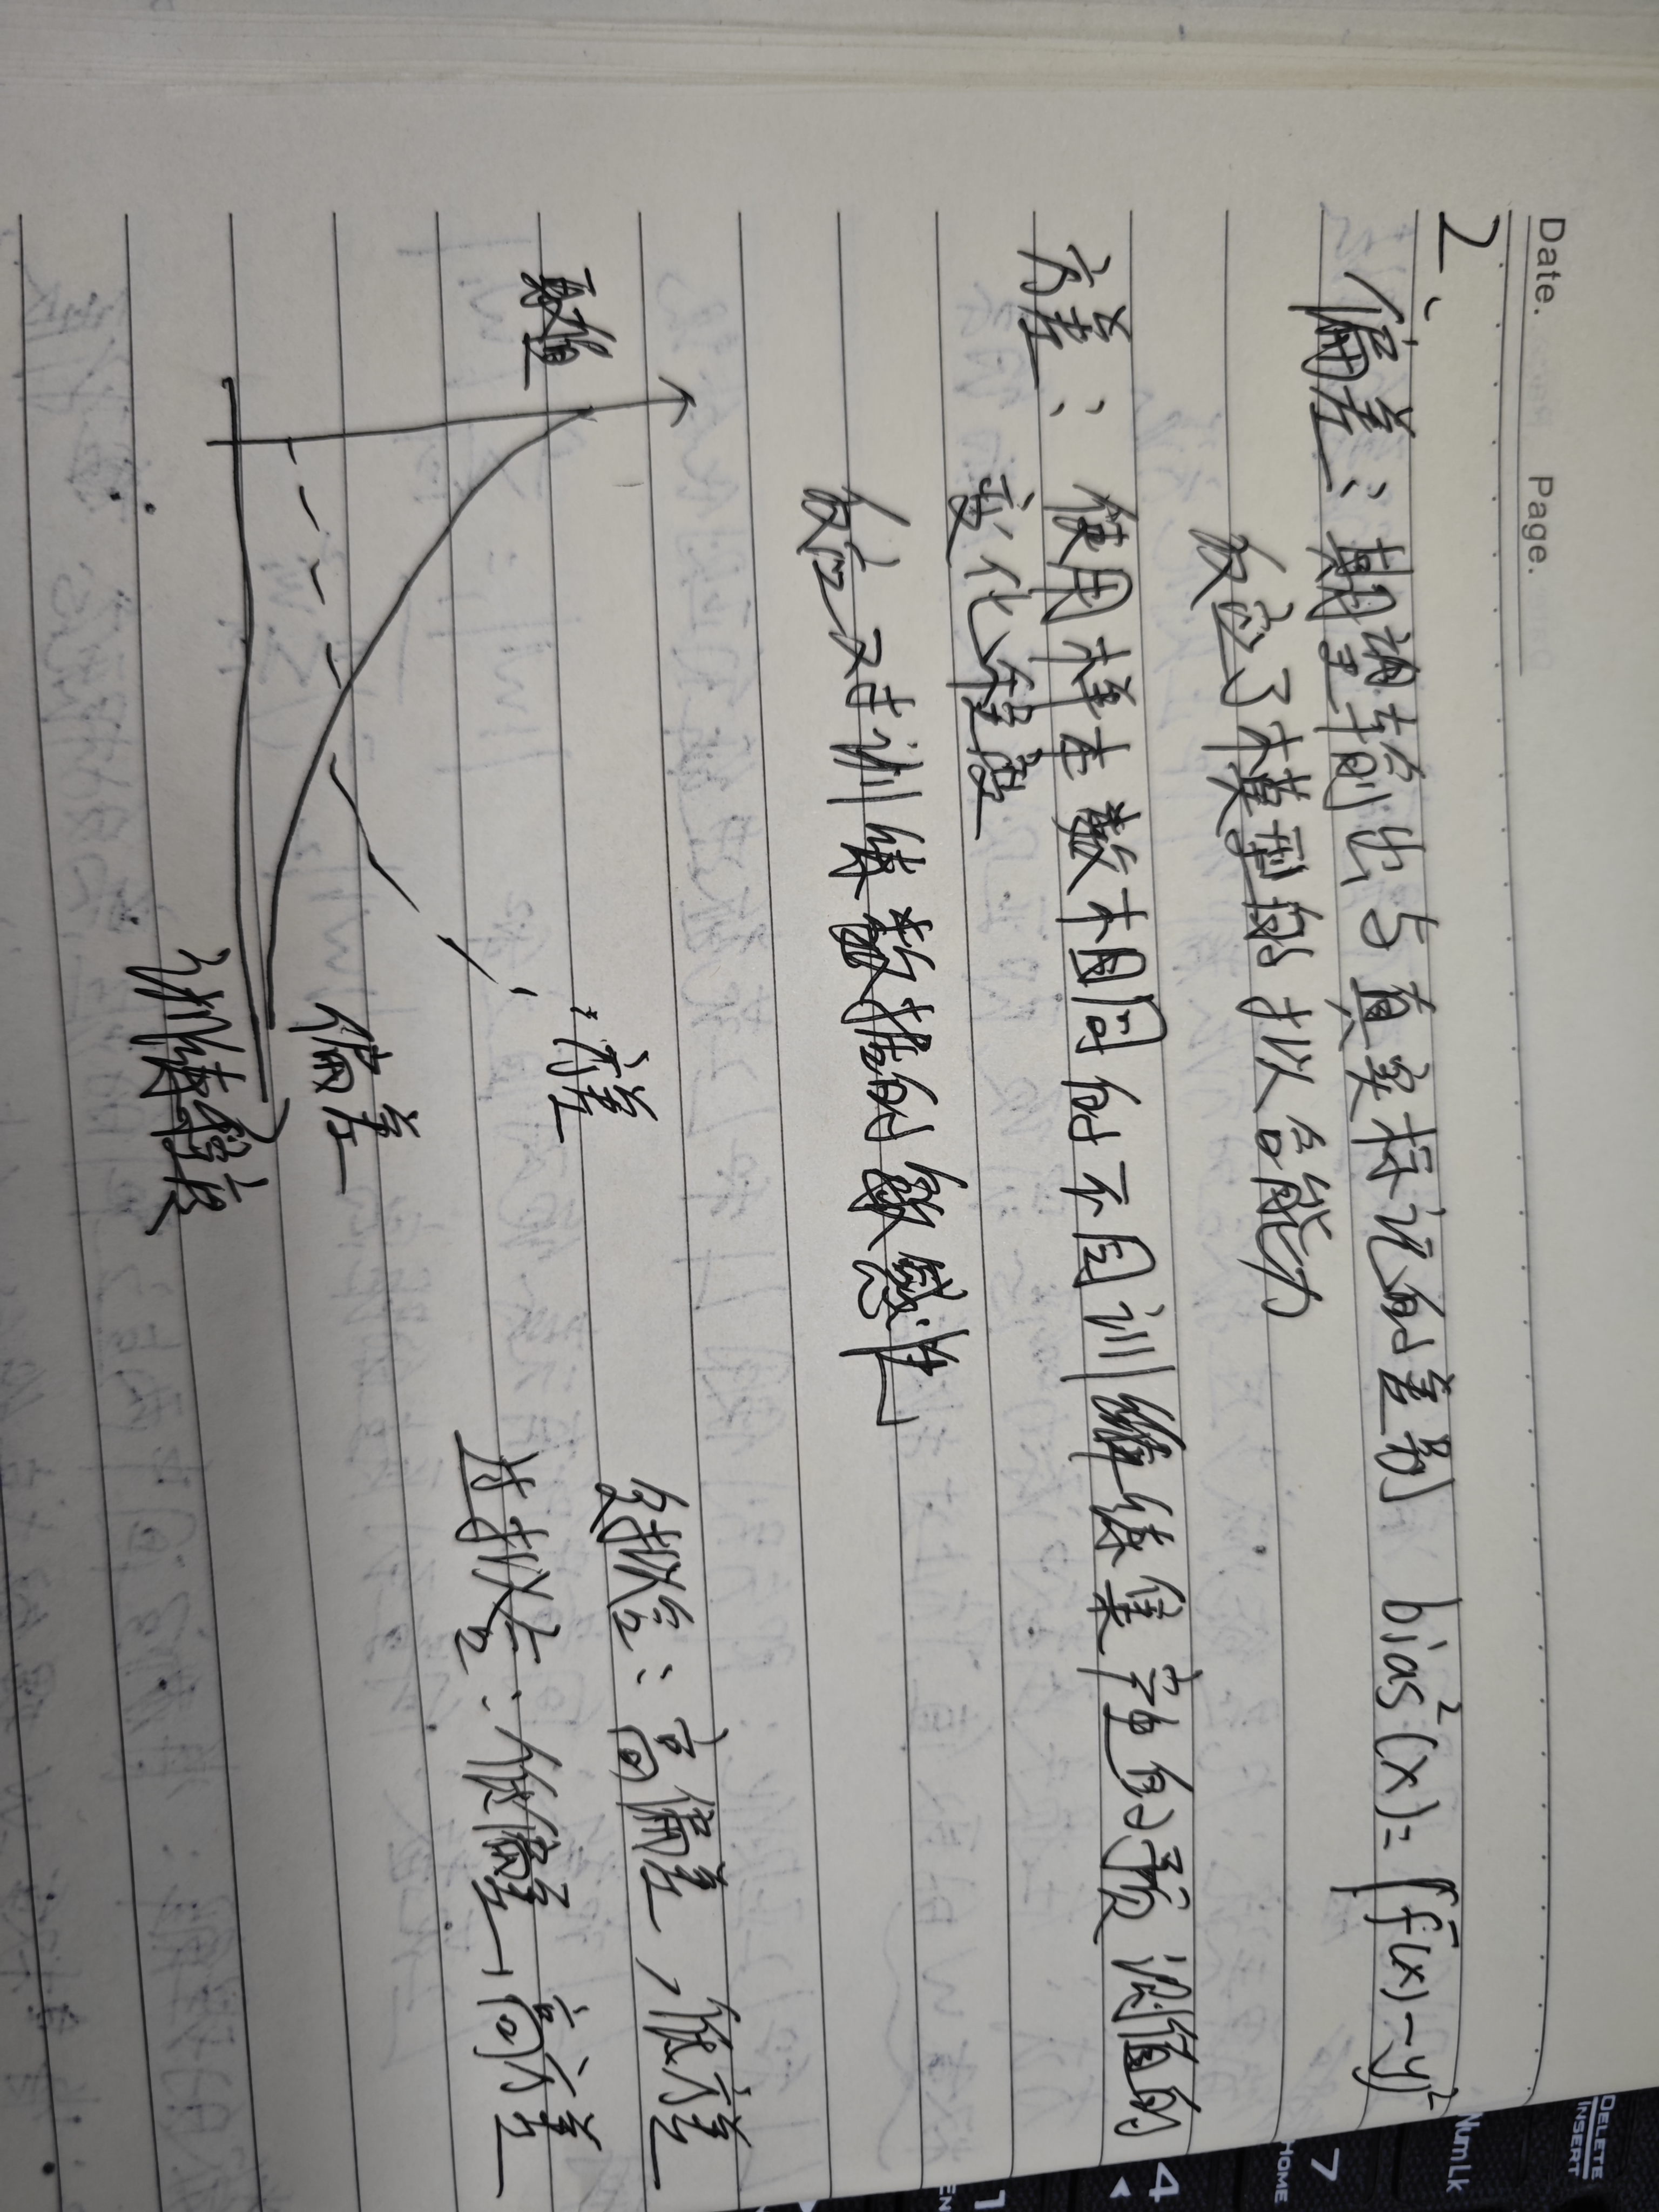 Date. Page.
2、偏差：期望输出与真实标记的差别 bias²(x)=(f̄(x)-y)²
反应了模型的拟合能力
方差：使用样本数相同的不同训练集产生的预测值的
变化程度
反应了对训练数据的敏感性
数值
方差
偏差
训练程度
欠拟合：高偏差，低方差
过拟合：低偏差，高方差
DELETE
INSERT
NumLk
7
HOME
4
1
EN